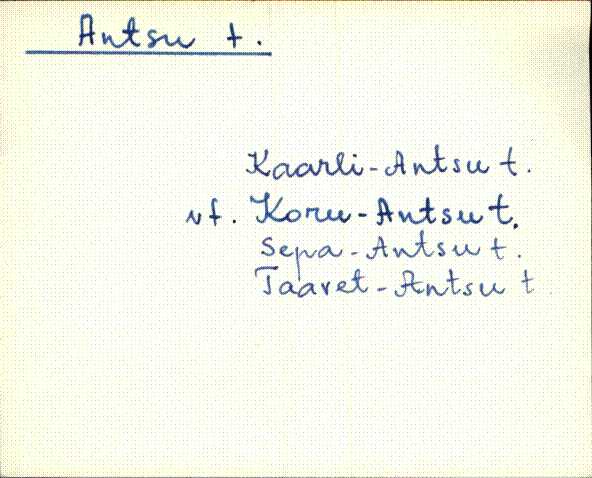 Antsu t.
Kaarli-Antsu t.
vt. Koru-Antsu t.
Sepa-Antsu t.
Taavet-Antsu t.